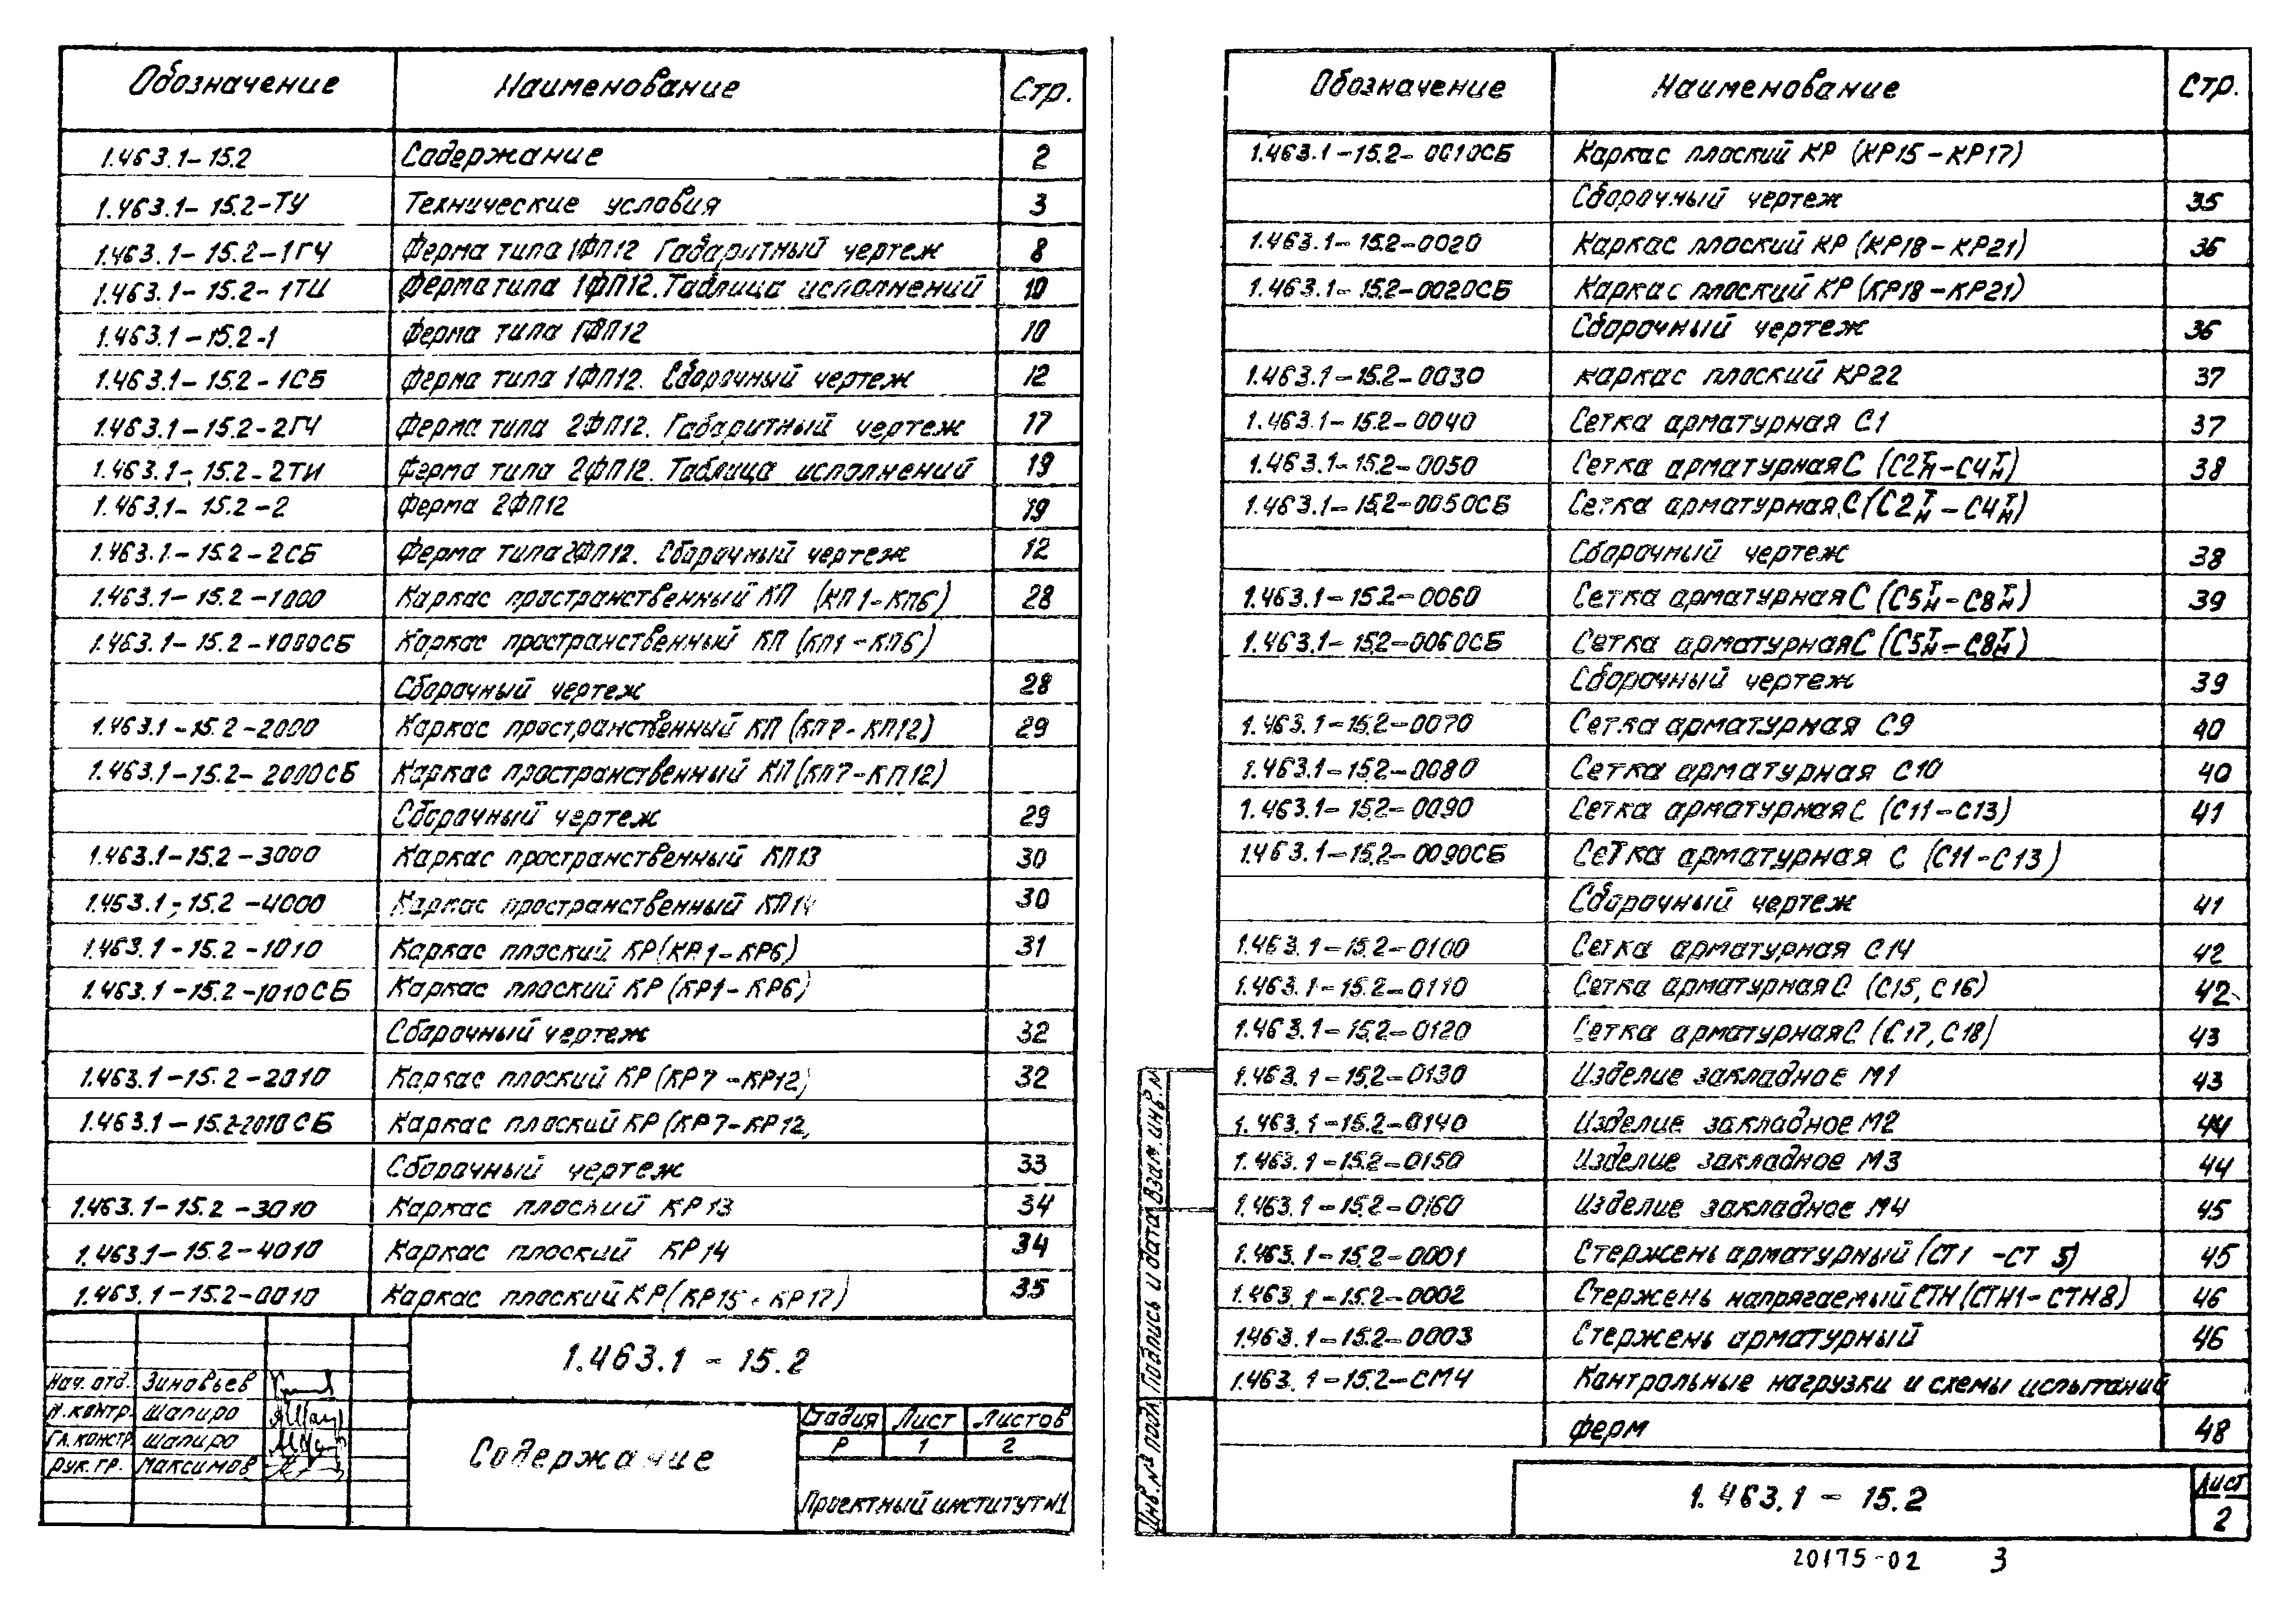 Обозначение Наименование Стр.
1.463.1-15.2 Содержание 2
1.463.1-15.2-ТУ Технические условия 3
1.463.1-15.2-1ГЧ Ферма типа 1ФП12 Габаритный чертеж 8
1.463.1-15.2-1ТИ Ферма типа 1ФП12. Таблица исполнений 10
1.463.1-15.2-1 Ферма типа 1ФП12 10
1.463.1-15.2-1СБ Ферма типа 1ФП12. Сборочный чертеж 12
1.463.1-15.2-2ГЧ Ферма типа 2ФП12. Габаритный чертеж 17
1.463.1-15.2-2ТИ Ферма типа 2ФП12. Таблица исполнений 19
1.463.1-15.2-2 Ферма 2ФП12 19
1.463.1-15.2-2СБ Ферма типа 2ФП12. Сборочный чертеж 12
1.463.1-15.2-1000 Каркас пространственный КП (КП1-КП6) 28
1.463.1-15.2-1000СБ Каркас пространственный КП (КП1-КП6)
Сборочный чертеж 28
1.463.1-15.2-2000 Каркас пространственный КП (КП7-КП12) 29
1.463.1-15.2-2000СБ Каркас пространственный КП (КП7-КП12)
Сборочный чертеж 29
1.463.1-15.2-3000 Каркас пространственный КП13 30
1.463.1-15.2-4000 Каркас пространственный КП14 30
1.463.1-15.2-1010 Каркас плоский КР (КР1-КР6) 31
1.463.1-15.2-1010СБ Каркас плоский КР (КР1-КР6)
Сборочный чертеж 32
1.463.1-15.2-2010 Каркас плоский КР (КР7-КР12) 32
1.463.1-15.2-2010СБ Каркас плоский КР (КР7-КР12,
Сборочный чертеж 33
1.463.1-15.2-3010 Каркас плоский КР13 34
1.463.1-15.2-4010 Каркас плоский КР14 34
1.463.1-15.2-0010 Каркас плоский КР (КР15-КР17) 35
1.463.1-15.2
Нач. отд. Зиновьев
Н.контр. Шапиро
Гл. констр. Шапиро
Рук. гр. Максимов
Содержание
Стадия Лист Листов
Р 1 2
Проектный институт №1
Обозначение Наименование Стр.
1.463.1-15.2-0010СБ Каркас плоский КР (КР15-КР17)
Сборочный чертеж 35
1.463.1-15.2-0020 Каркас плоский КР (КР18-КР21) 36
1.463.1-15.2-0020СБ Каркас плоский КР (КР18-КР21)
Сборочный чертеж 36
1.463.1-15.2-0030 Каркас плоский КР22 37
1.463.1-15.2-0040 Сетка арматурная С1 37
1.463.1-15.2-0050 Сетка арматурная С (С2Т/Н-С4Т/Н) 38
1.463.1-15.2-0050СБ Сетка арматурная С (С2Т/Н-С4Т/Н)
Сборочный чертеж 38
1.463.1-15.2-0060 Сетка арматурная С (С5Т/Н-С8Т/Н) 39
1.463.1-15.2-0060СБ Сетка арматурная С (С5Т/Н-С8Т/Н)
Сборочный чертеж 39
1.463.1-15.2-0070 Сетка арматурная С9 40
1.463.1-15.2-0080 Сетка арматурная С10 40
1.463.1-15.2-0090 Сетка арматурная С (С11-С13) 41
1.463.1-15.2-0090СБ Сетка арматурная С (С11-С13)
Сборочный чертеж 41
1.463.1-15.2-0100 Сетка арматурная С14 42
1.463.1-15.2-0110 Сетка арматурная С (С15, С16) 42
1.463.1-15.2-0120 Сетка арматурная С (С17, С18) 43
1.463.1-15.2-0130 Изделие закладное М1 43
1.463.1-15.2-0140 Изделие закладное М2 44
1.463.1-15.2-0150 Изделие закладное М3 44
1.463.1-15.2-0160 Изделие закладное М4 45
1.463.1-15.2-0001 Стержень арматурный (СТ1-СТ5) 45
1.463.1-15.2-0002 Стержень напрягаемый СТН (СТН1-СТН8) 46
1.463.1-15.2-0003 Стержень арматурный 46
1.463.1-15.2-СМ4 Контрольные нагрузки и схемы испытаний
ферм 48
Инв.№ подл. Подпись и дата Взам. инв. №
1.463.1-15.2
Лист
2
20175-02 3